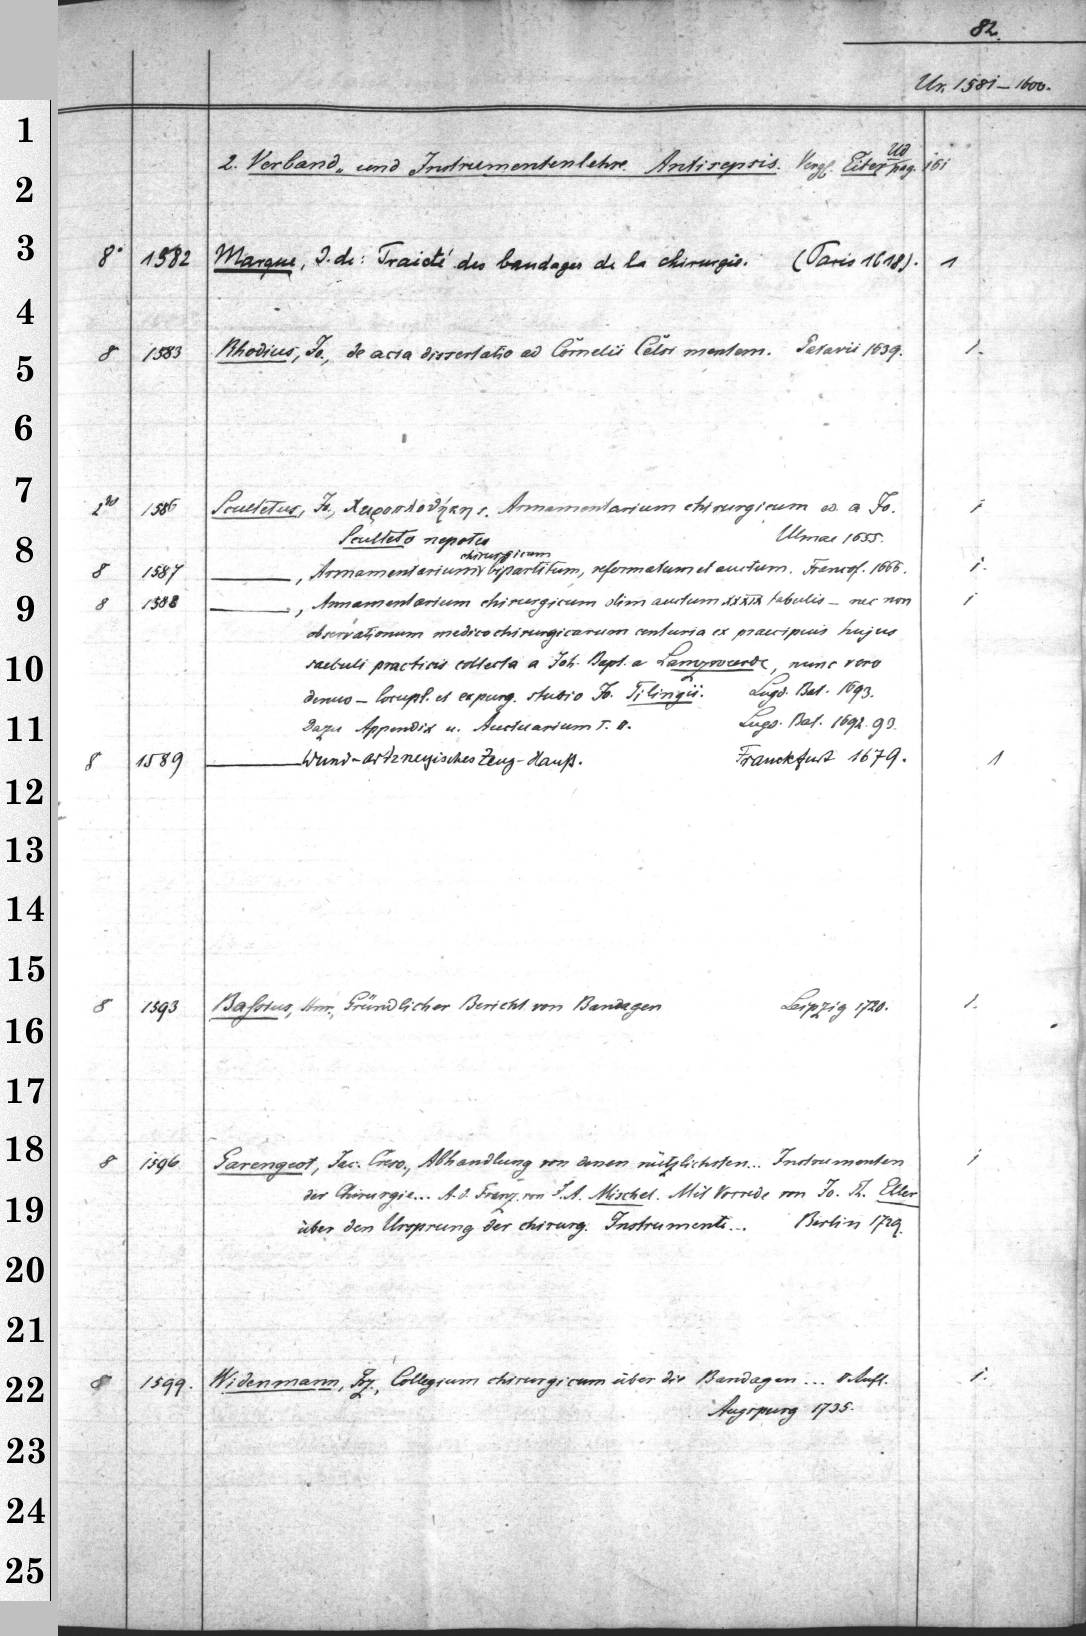 82.
Ur. 1581-1600.
1
2. Verband- und Instrumentenlehre. Antisepsis. Vergl. Eiter pag. 161
2
3
8° 1582 Marque, J. de: Traicté des bandages de la chirurgie. (Paris 1618). 1
4
8 1583 Rhodius, Jo., de acia dissertatio ad Cornelii Celsi mentem. Patavii 1639. 1.
5
6
7
2° 1586 Scultetus, Jo., Χειροπλοθήκη s. Armamentarium chirurgicum ed. a Jo. 1
Sculteto nepote Ulmae 1655.
8
chirurgicum
8 1587 ———, Armamentarium bipartitum, reformatum et auctum. Francof. 1666. 1.
9
8 1588 ———, Armamentarium chirurgicum olim auctum XXXIX tabulis - nec non 1
observationum medicochirurgicarum centuria ex praecipuis hujus
10
saeculi practicis collecta a Joh. Bapt. a Lamzwerde, nunc vero
denuo - locupl. et expurg. studio Jo. Tilingii. Lugd. Bat. 1693.
11
Dazu Appendix u. Auctuarium T. II. Lugd. Bat. 1692. 93
8 1589 ——— Wund-artzneyisches Zeug-Hauß. Franckfurt 1679. 1
12
13
14
15
8 1593 Bassius, Hnr., Gründlicher Bericht von Bandagen Leipzig 1720. 1.
16
17
18
8 1596 Garengeot, Jac. Cress., Abhandlung von denen nützlichsten... Instrumenten 1
der Chirurgie... A. d. Franz. von J. A. Mischel. Mit Vorrede von Jo. Th. Eller
19
über den Ursprung der chirurg. Instrumente... Berlin 1729.
20
21
22
8 1599. Widenmann, Fz., Collegium chirurgicum über die Bandagen ... Aufl. 1.
Augspurg 1735.
23
24
25